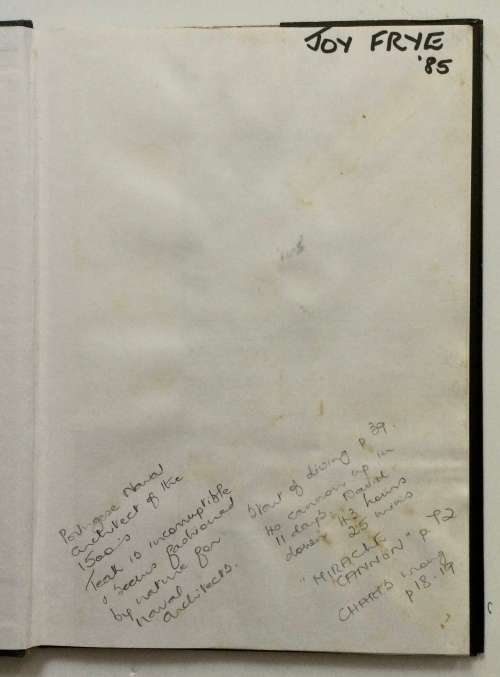 JOY FRYE
'85
Portugese Naval
architect of the
1500's
Teak is incorruptible
& seems fashioned
by nature for
Naval
architects.
Start of diving p 39.
40 cannon up in
11 days. David
down 43 hours
25 mins
"MIRACLE
CANNON" p 42
CHARTS wrong
p 18-19